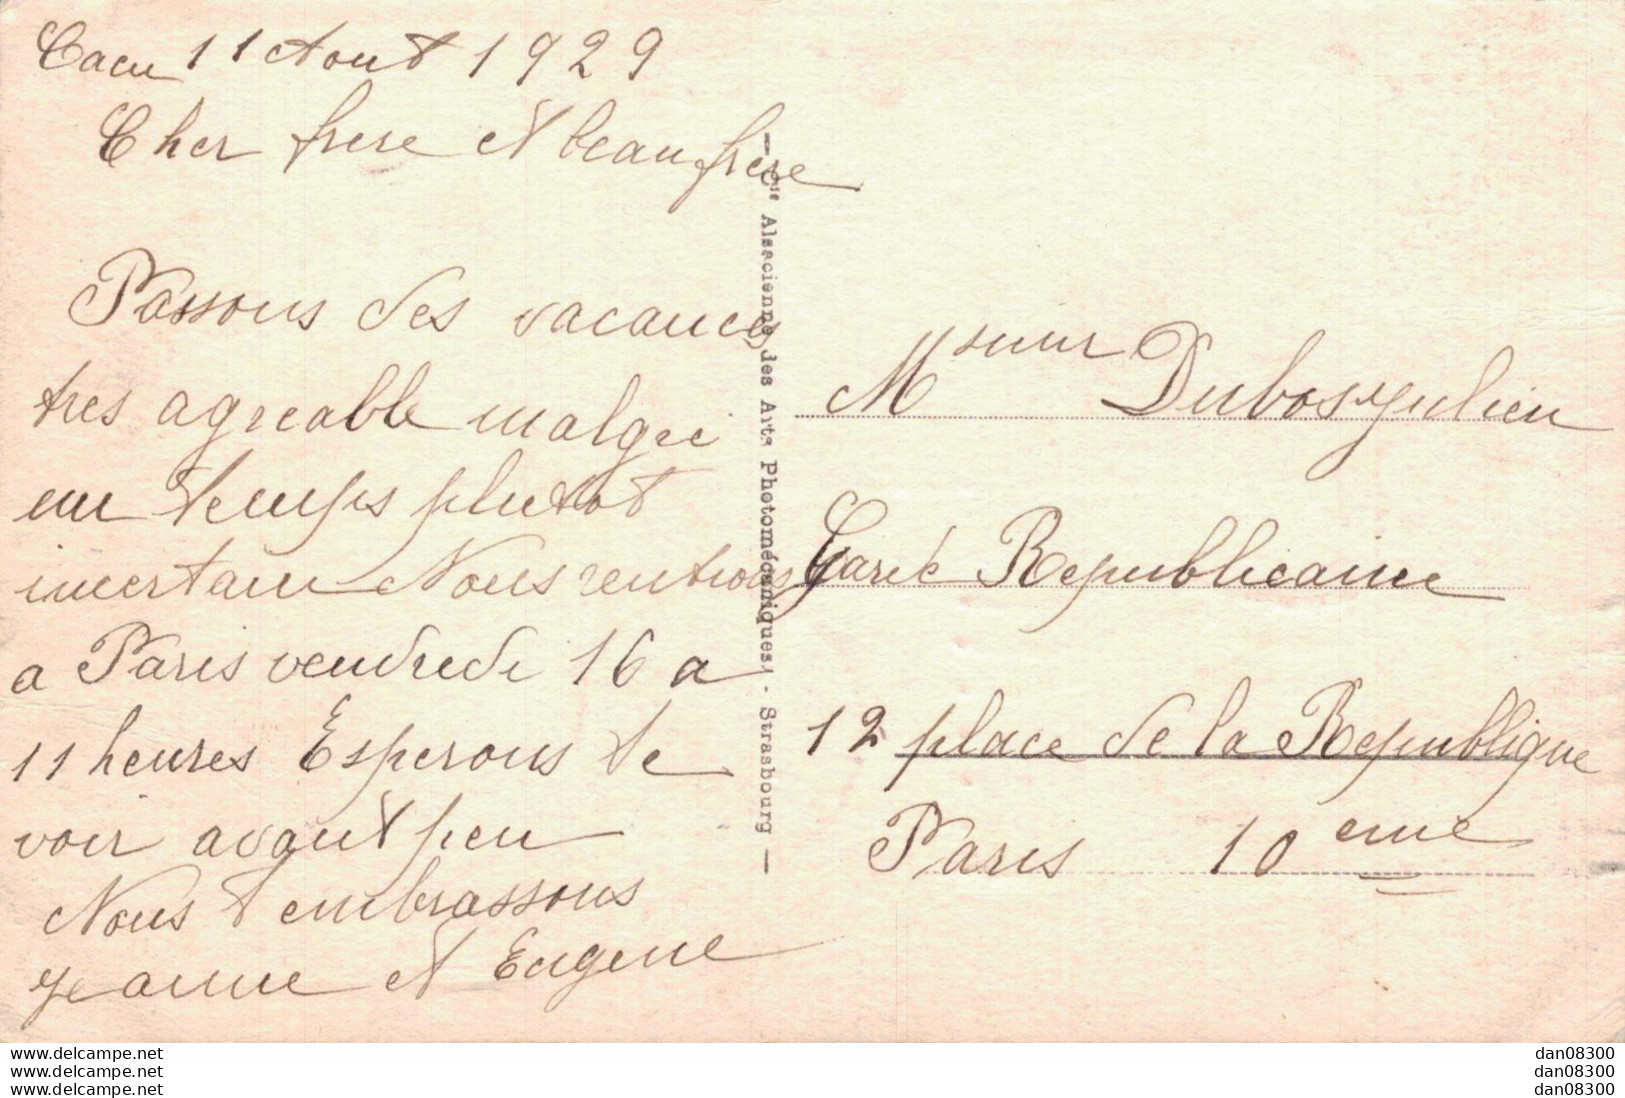 Caen 11 Aout 1929
Cher frere et beau frere
Passons des vacances
tres agreable malgre
un temps plutot
incertain Nous rentrons
a Paris vendredi 16 a
11 heures Esperons te
voir avant peu
Nous t embrassons
Jeanne et Eugene
— Cie Alsacienne des Arts Photomécaniques, - Strasbourg —
Msieur Dubos Julien
Garde Republicaine
12 place de la Republique
Paris 10 eme
www.delcampe.net
www.delcampe.net
www.delcampe.net
dan08300
dan08300
dan08300